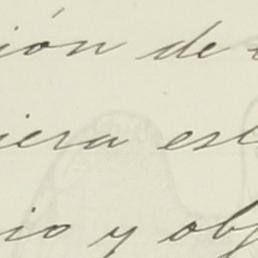 ión de
iera est
io y obj